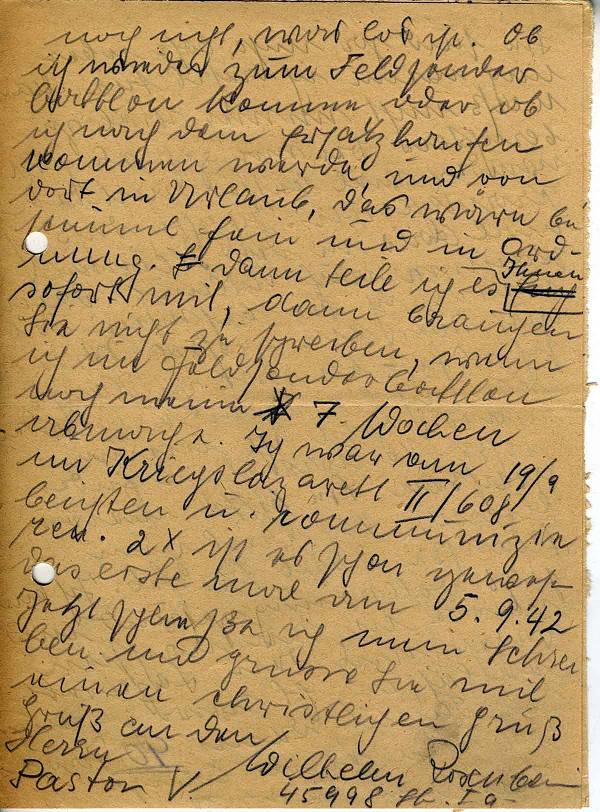 noch nicht, was los ist. Ob
ich wieder zum Feldsonder
Battlon komme oder ob
ich nach dem Ersatzhaufen
kommen werde und von
dort in Urlaub, das wäre be
stimmt fein und in Ord-
nung. dann teile ich es Ihnen
sofort mit, dann brauchen
Sie nicht zu schreiben, wenn
ich im Feldsonder Battlon
noch meine 7. Wochen
abmache. Ich war am 19/9
im Kriegslazarett II/608
beichten u. kommunizie
ren. 2x ist es schon gewesen
das erste mal am 5.9.42
Jetzt schließe ich mein Schrei
ben und grüsse Sie mit
einen christlichen Gruß
Gruß an den
Herrn
Pastor V. Wilhelm
45998